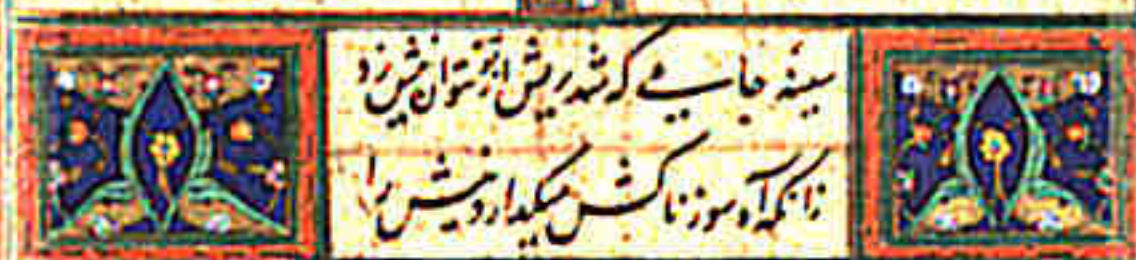 سینهٔ جامی که شد ریش از تو نتوان نیش زد
زانکه آه سوزناکش میگدازد نیش را